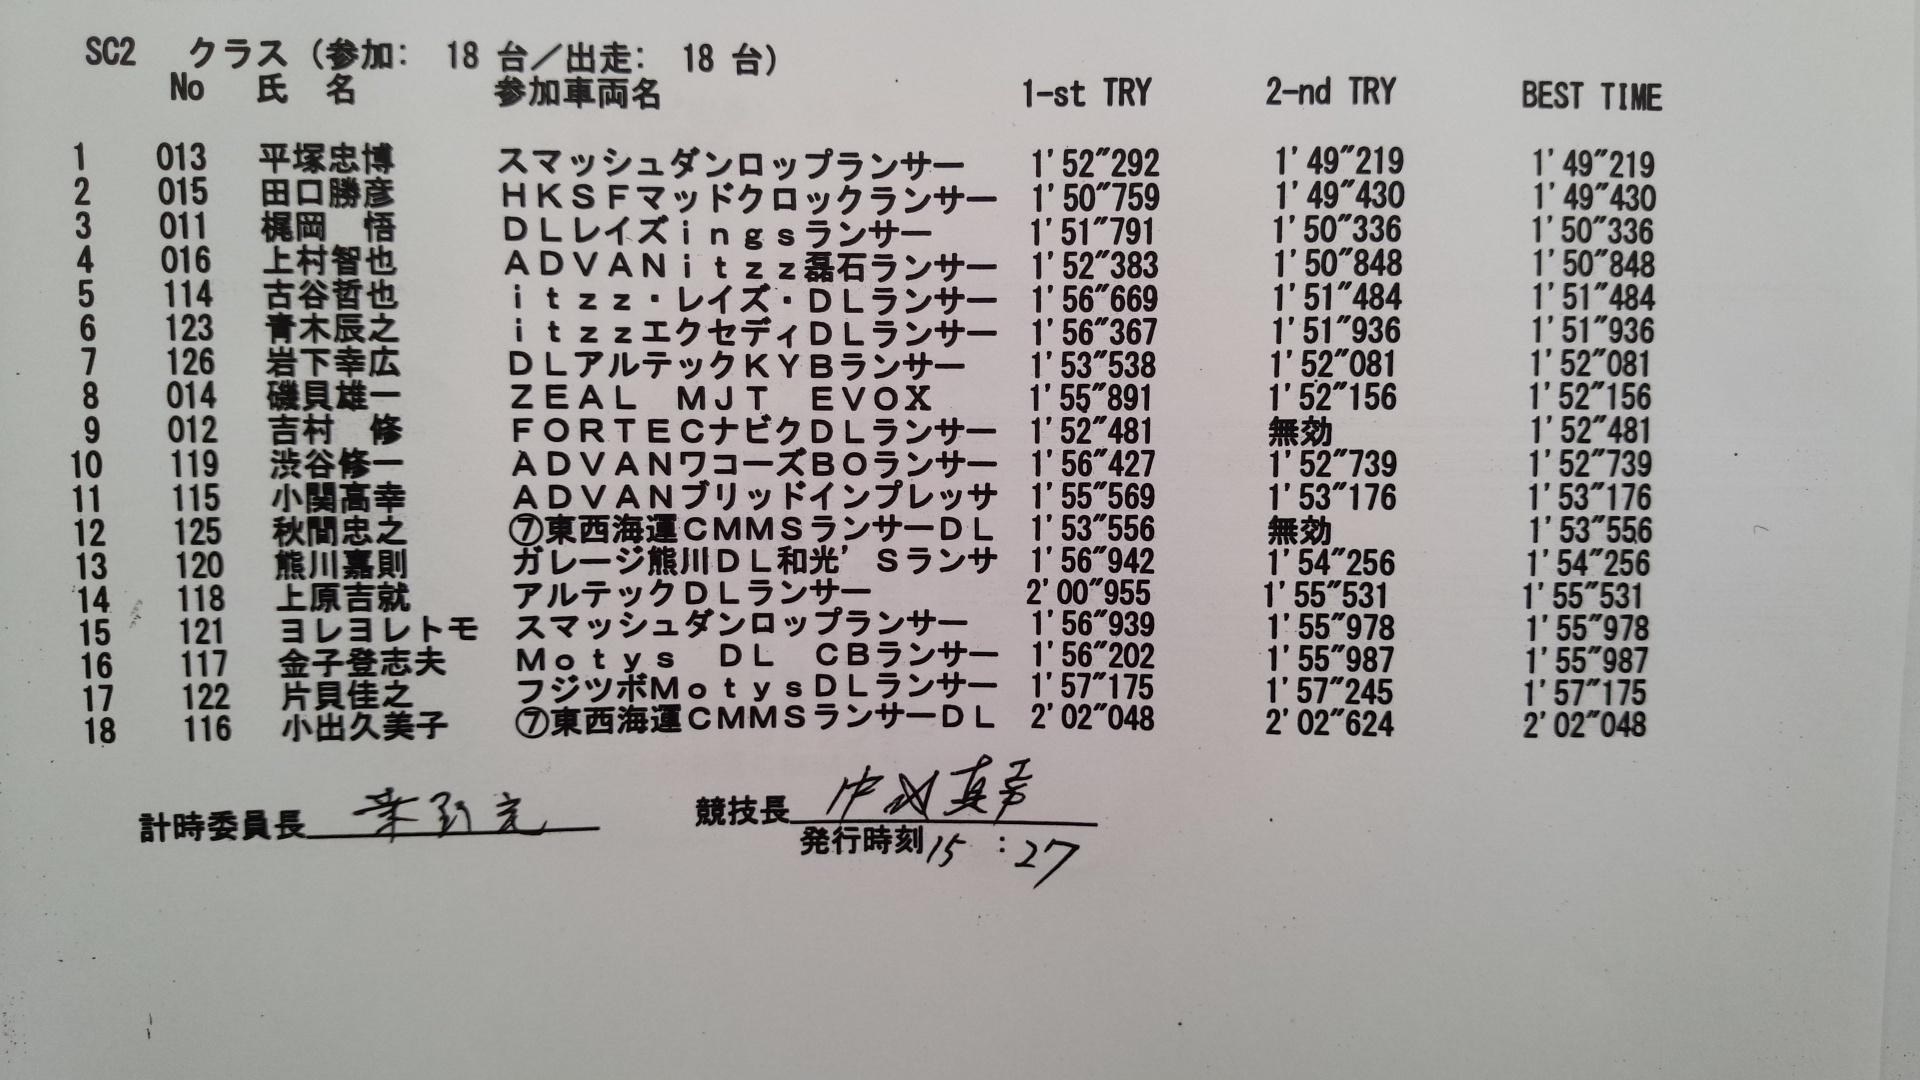 SC2 クラス (参加: 18 台/出走: 18 台)
No 氏 名 参加車両名 1-st TRY 2-nd TRY BEST TIME
1 013 平塚忠博 スマッシュダンロップランサー 1'52"292 1'49"219 1'49"219
2 015 田口勝彦 HKSFマッドクロックランサー 1'50"759 1'49"430 1'49"430
3 011 梶岡 悟 DLレイズingsランサー 1'51"791 1'50"336 1'50"336
4 016 上村智也 ADVANitzz磊石ランサー 1'52"383 1'50"848 1'50"848
5 114 古谷哲也 itzz・レイズ・DLランサー 1'56"669 1'51"484 1'51"484
6 123 青木辰之 itzzエクセディDLランサー 1'56"367 1'51"936 1'51"936
7 126 岩下幸広 DLアルテックKYBランサー 1'53"538 1'52"081 1'52"081
8 014 磯貝雄一 ZEAL MJT EVOX 1'55"891 1'52"156 1'52"156
9 012 吉村 修 FORTECナビクDLランサー 1'52"481 無効 1'52"481
10 119 渋谷修一 ADVANワコーズBOランサー 1'56"427 1'52"739 1'52"739
11 115 小関高幸 ADVANブリッドインプレッサ 1'55"569 1'53"176 1'53"176
12 125 秋間忠之 ⑦東西海運CMMSランサーDL 1'53"556 無効 1'53"556
13 120 熊川嘉則 ガレージ熊川DL和光'Sランサ 1'56"942 1'54"256 1'54"256
14 118 上原吉就 アルテックDLランサー 2'00"955 1'55"531 1'55"531
15 121 ヨレヨレトモ スマッシュダンロップランサー 1'56"939 1'55"978 1'55"978
16 117 金子登志夫 Motys DL CBランサー 1'56"202 1'55"987 1'55"987
17 122 片貝佳之 フジツボMotysDLランサー 1'57"175 1'57"245 1'57"175
18 116 小出久美子 ⑦東西海運CMMSランサーDL 2'02"048 2'02"624 2'02"048
計時委員長 競技長
発行時刻 15:27